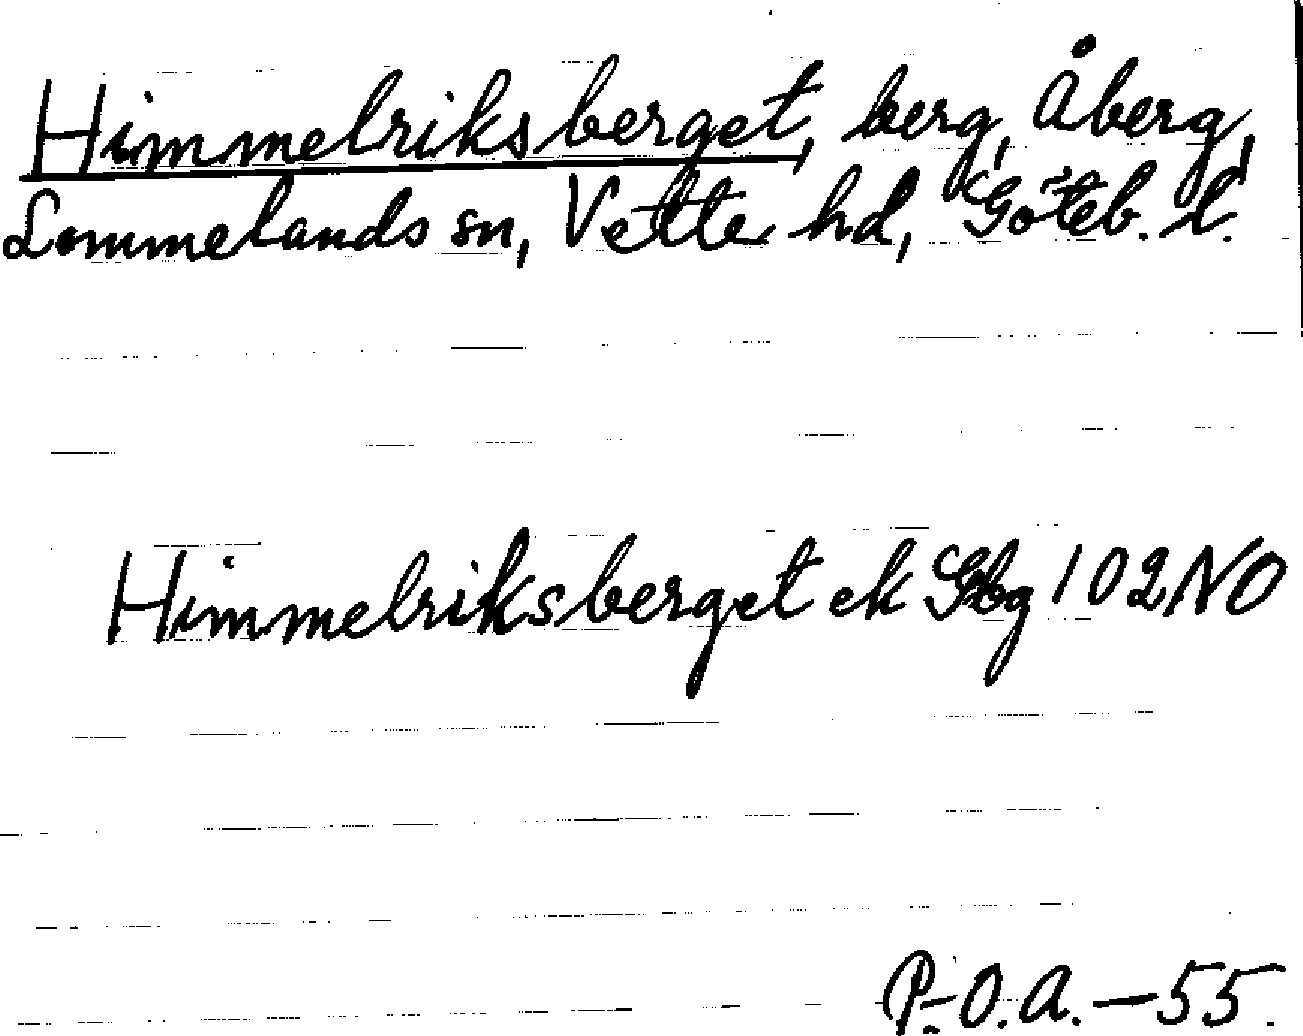 Himmelriksberget, berg, Åberg,
Lommelands sn, Vette hd, Göteb. l.
Himmelriksberget ek Gbg 102 NO
P.-O.A.-55.